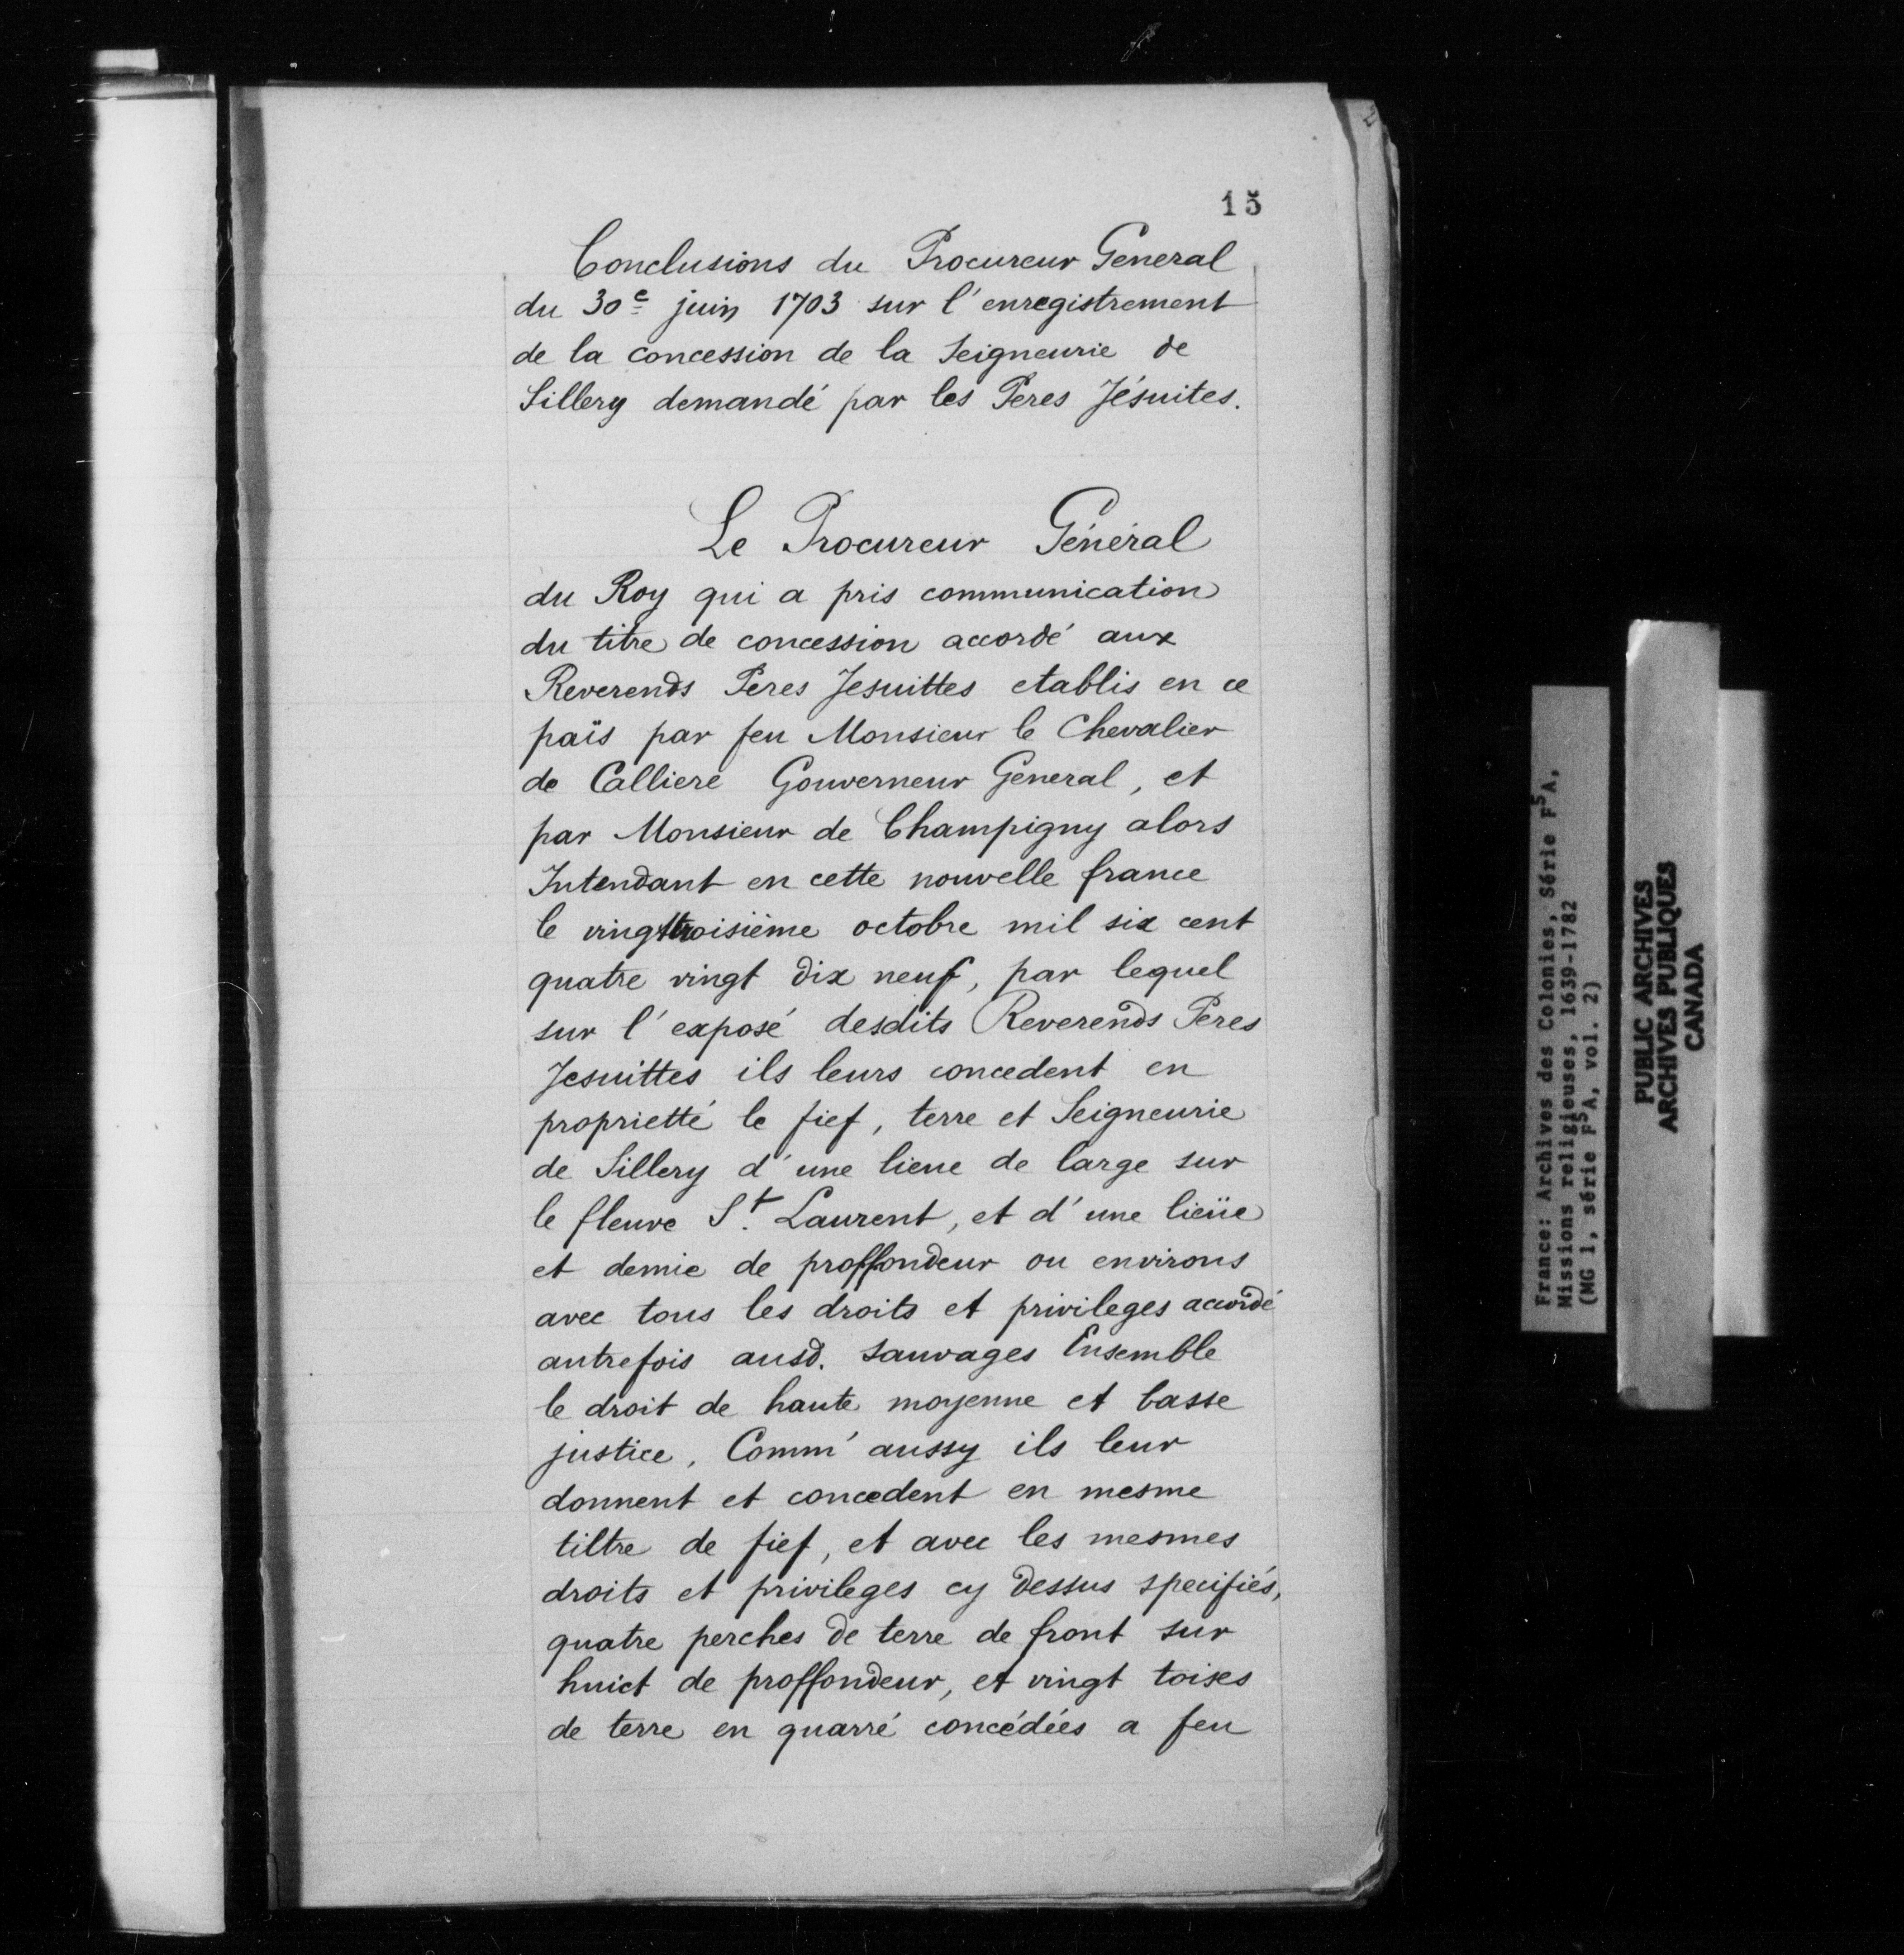 15
Conclusions du Procureur General
du 30e juin 1703 sur l'enregistrement
de la concession de la Seigneurie de
Sillery demandé par les Peres Jésuites.
Le Procureur Général
du Roy qui a pris communication
du titre de concession accordé aux
Reverends Peres Jesuittes etablis en ce
païs par feu Monsieur le Chevalier
de Calliere Gouverneur General, et
par Monsieur de Champigny alors
Intendant en cette nouvelle france
le vingttroisième octobre mil six cent
quatre vingt dix neuf, par lequel
sur l'exposé desdits Reverends Peres
Jesuittes ils leurs concedent en
proprietté le fief, terre et Seigneurie
de Sillery d'une lieue de large sur
le fleuve St. Laurent, et d'une lieüe
et demie de proffondeur ou environs
avec tous les droits et privileges accordé
autrefois ausd. sauvages Ensemble
le droit de haute moyenne et basse
justice, Comm' aussy ils leur
donnent et concedent en mesme
tiltre de fief, et avec les mesmes
droits et privileges cy dessus specifiés,
quatre perches de terre de front sur
huict de proffondeur, et vingt toises
de terre en quarré concédées a feu
France: Archives des Colonies, Série F5A,
Missions religieuses, 1639-1782
(MG 1, série F5A, vol. 2)
PUBLIC ARCHIVES
ARCHIVES PUBLIQUES
CANADA